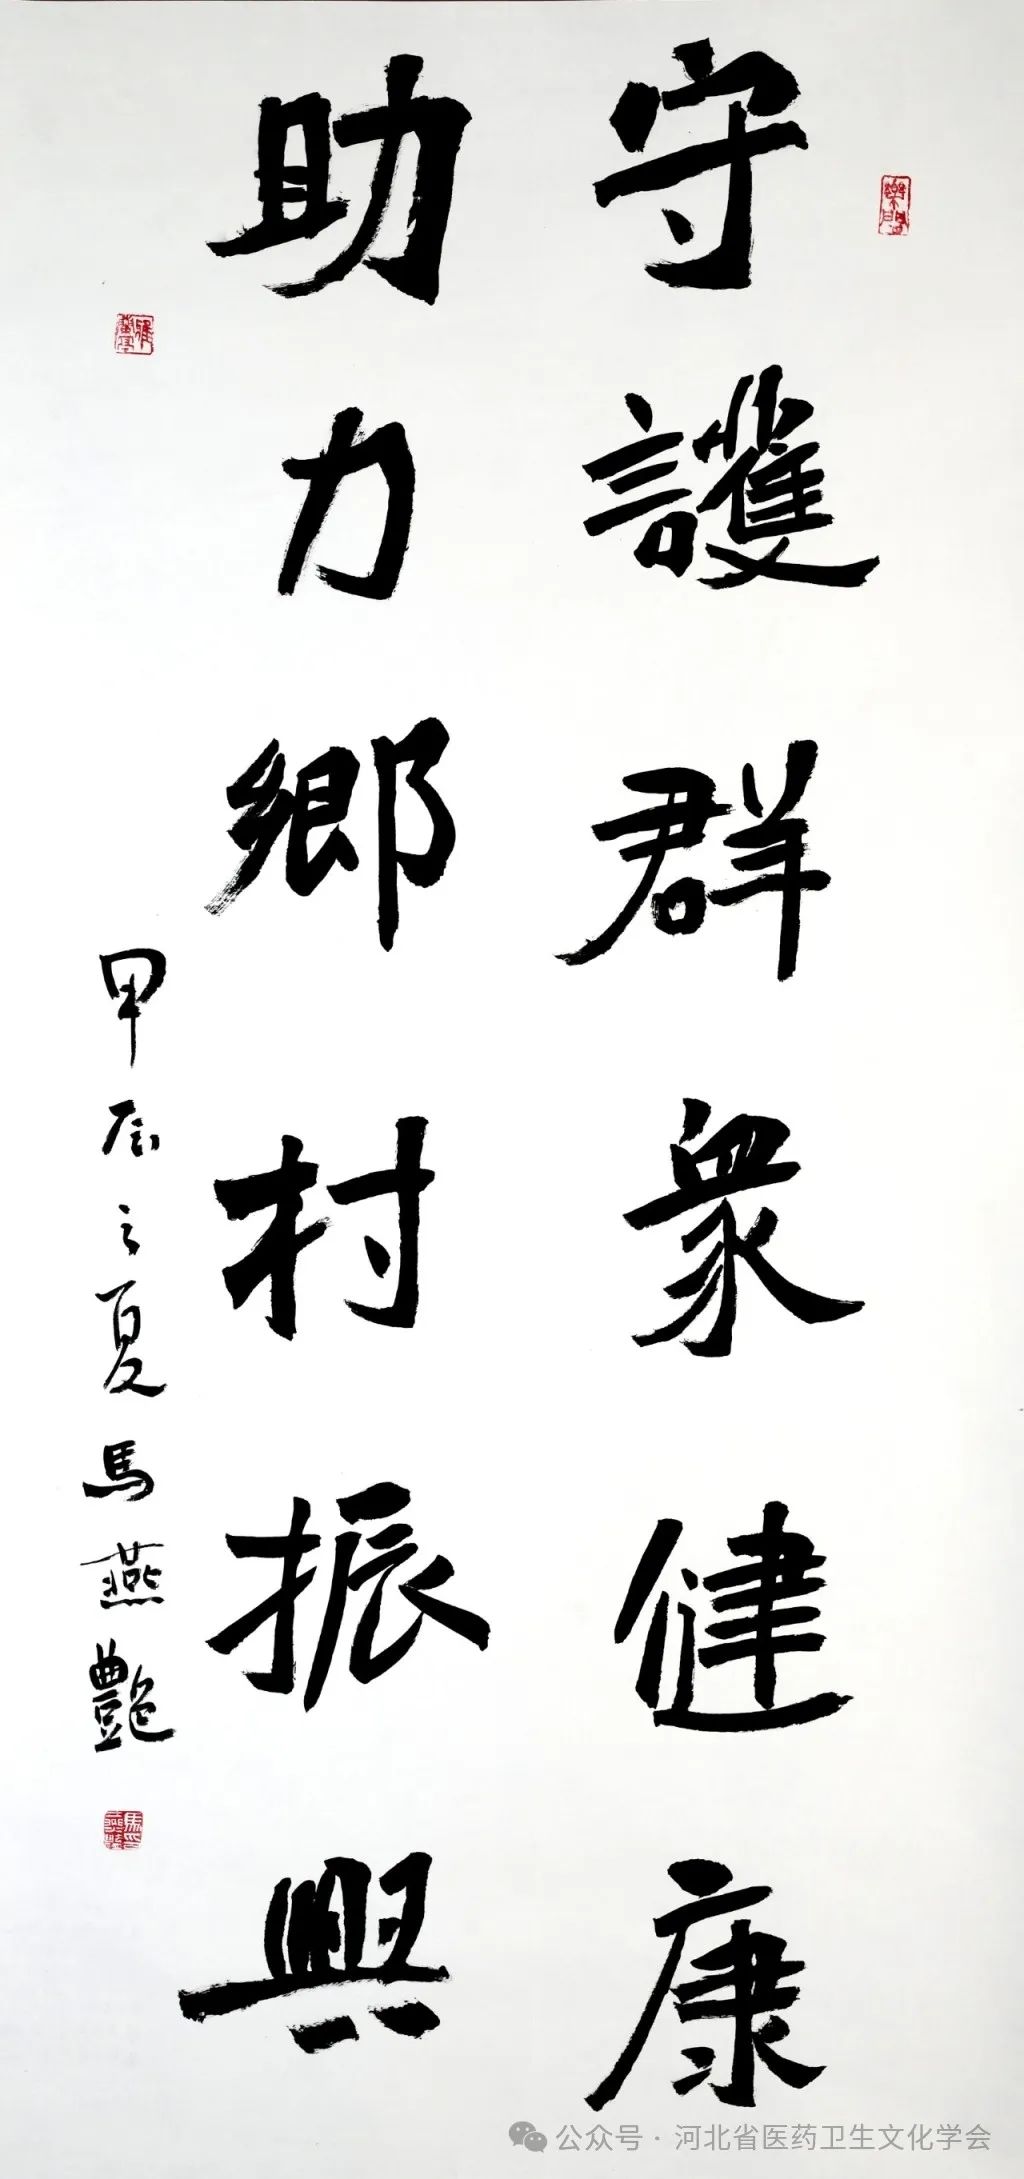 守護群衆健康
助力鄉村振興
甲辰之夏馬燕艷
公众号·河北省医药卫生文化学会